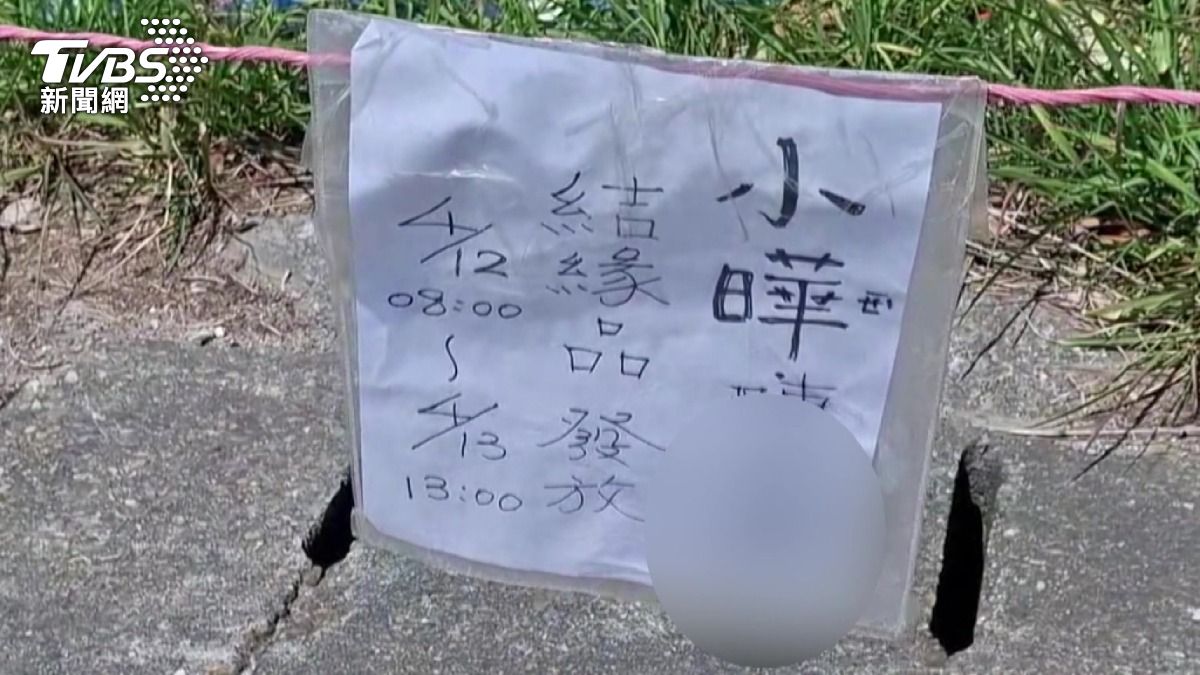 TVBS
新聞網
小曄ㄝˋ
結緣品發放
4/12
08:00
~
4/13
13:00